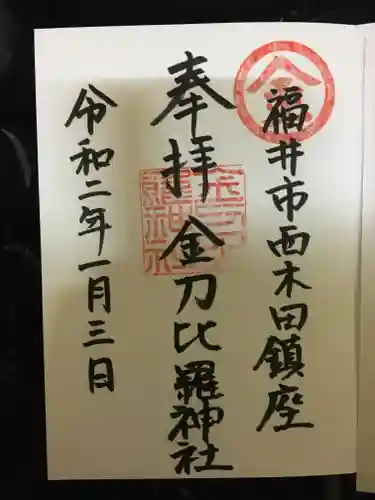 福井市西木田鎮座
奉拝 金刀比羅神社
令和二年一月三日
金